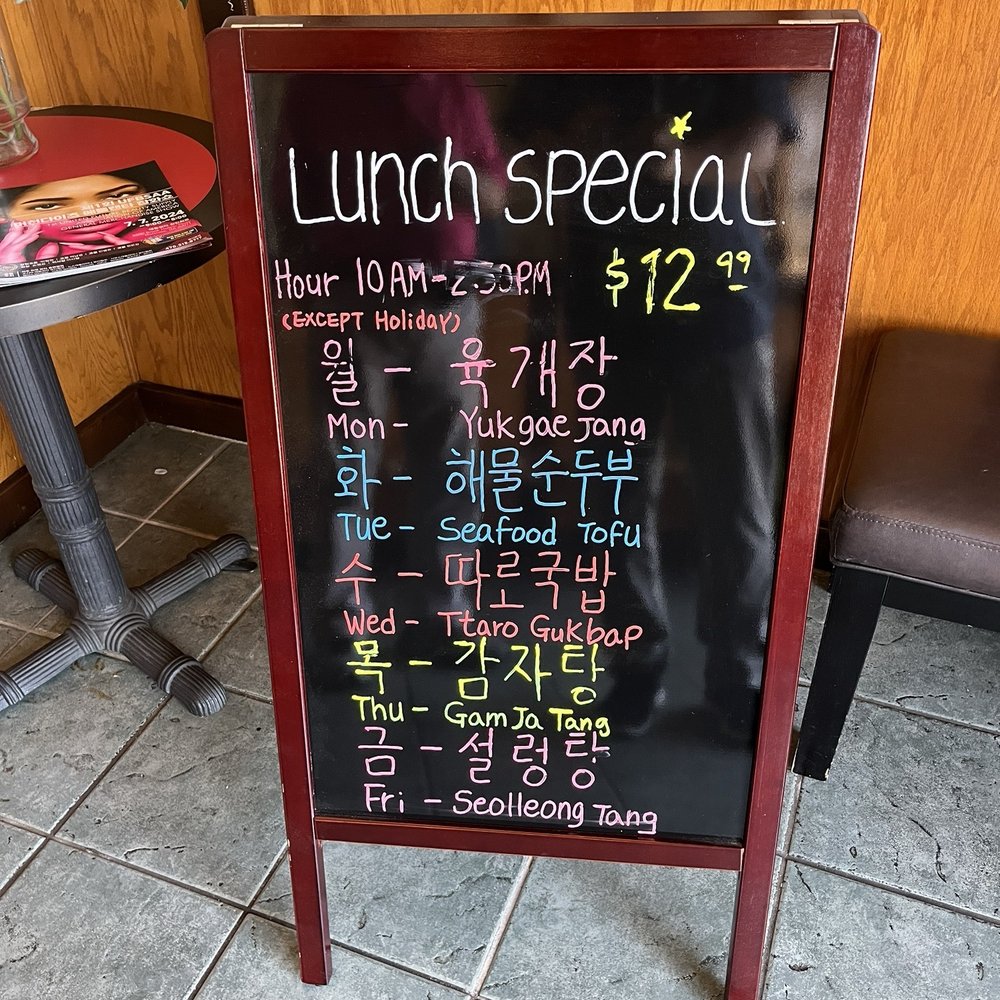 LUNCH SPECIAL
Hour 10AM-2:30P.M $12.99
(EXCEPT HOLIDAY)
월 - 육개장
Mon - Yukgaejang
화 - 해물순두부
Tue - Seafood Tofu
수 - 따로국밥
Wed - Ttaro Gukbap
목 - 감자탕
Thu - GamJa Tang
금 - 설렁탕
Fri - Seolleong Tang
7. 7. 2024